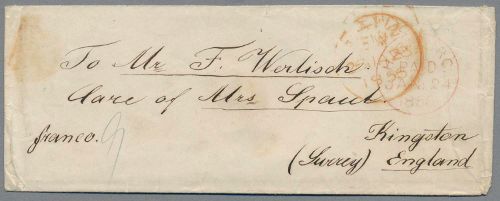 To Mr F. Werlisch
Care of Mrs Spaul.
franco.
Kingston
(Surrey) England
PAID
24